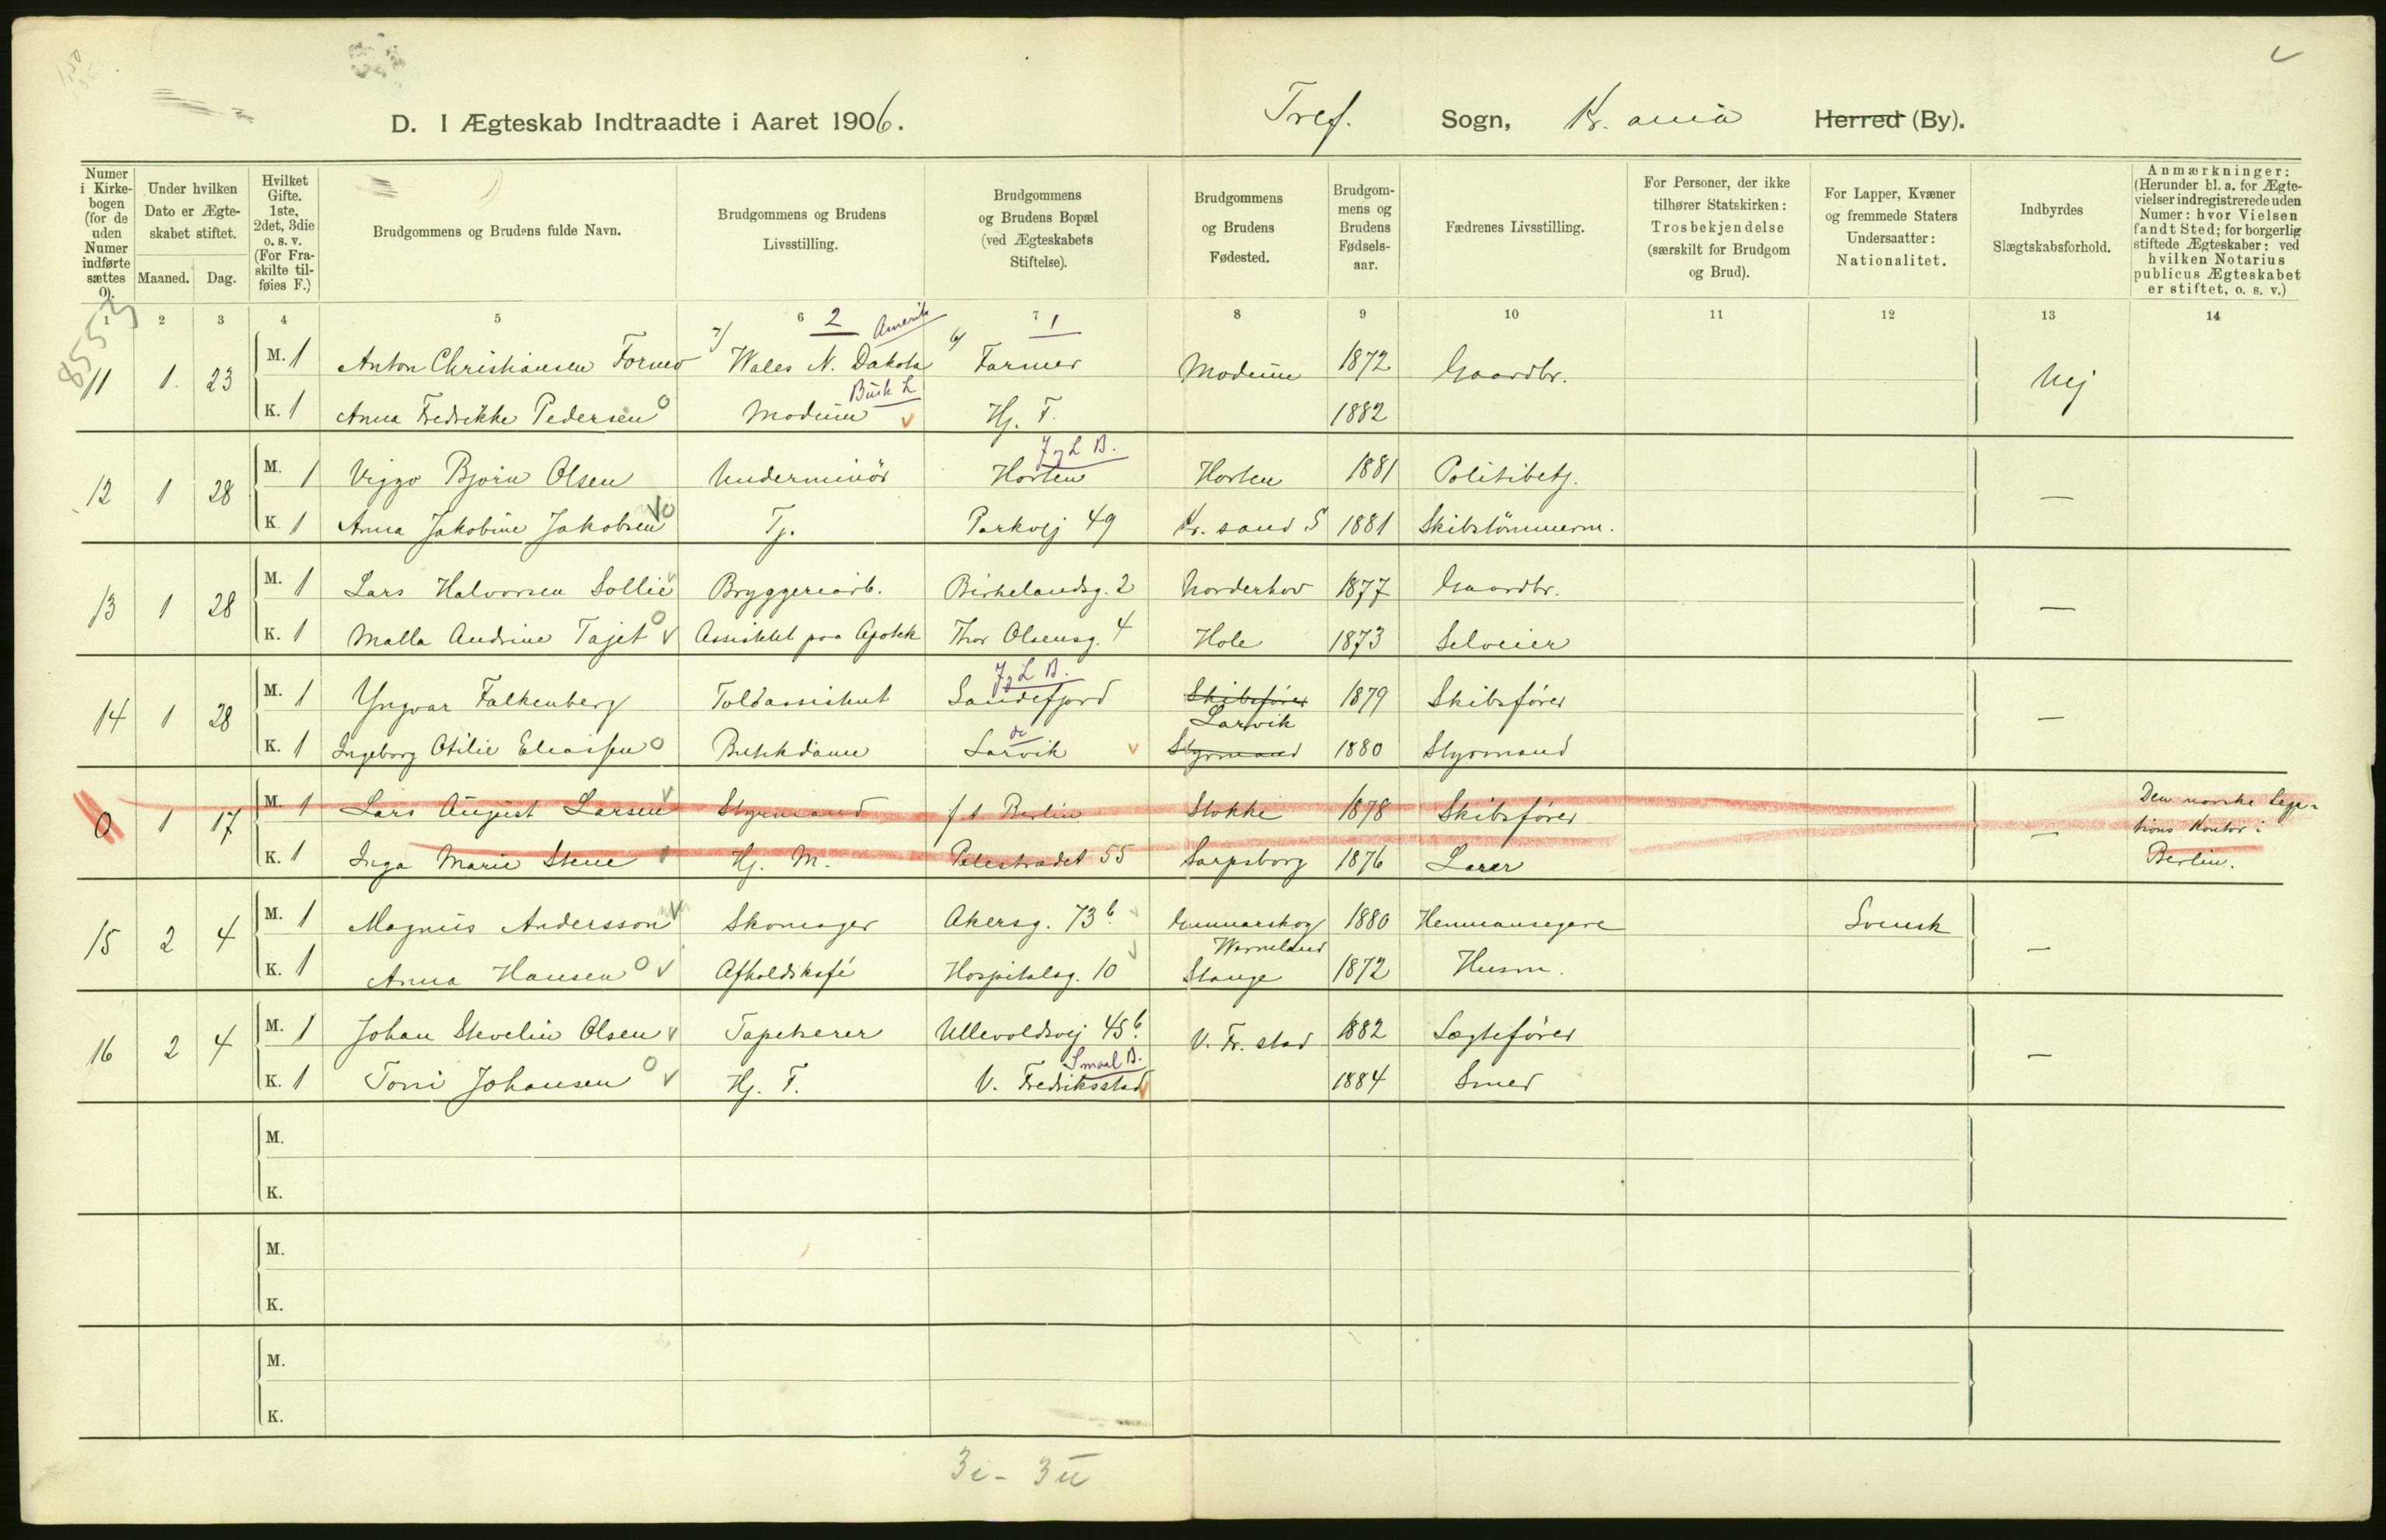 D. I Ægteskab Indtraadte i Aaret 1906. Tref. Sogn, Kr. ania Herred (By).
Numer i Kirkebogen (for de uden Numer indførte sættes 0).
Under hvilken Dato er Ægteskabet stiftet.
Maaned. Dag.
Hvilket Gifte. 1ste, 2det, 3die o. s. v. (For Fraskilte tilføies F.)
Brudgommens og Brudens fulde Navn.
Brudgommens og Brudens Livsstilling.
Brudgommens og Brudens Bopæl (ved Ægteskabets Stiftelse).
Brudgommens og Brudens Fødested.
Brudgommens og Brudens Fødselsaar.
Fædrenes Livsstilling.
For Personer, der ikke tilhører Statskirken: Trosbekjendelse (særskilt for Brudgom og Brud).
For Lapper, Kvæner og fremmede Staters Undersaatter: Nationalitet.
Indbyrdes Slægtskabsforhold.
Anmærkninger: (Herunder bl. a. for Ægtevielser indregistrerede uden Numer: hvor Vielsen fandt Sted; for borgerlig stiftede Ægteskaber: ved hvilken Notarius publicus Ægteskabet er stiftet, o. s. v.)
1 2 3 4 5 6 7 8 9 10 11 12 13 14
8553
2 Amerik 1
11 1. 23 M. 1 Anton Christiansen Formo 7/ Wales N. Dakota 6/ Farmer Modum 1872 Gaardbr. Nej
Busk L
K. 1 Anna Fredrikke Pedersen Modum Hj. F. 1882
J. L B.
12 1 28 M. 1 Viggo Bjørn Olsen Underminör Horten Horten 1881 Politibetj. —
K 1 Anna Jakobine Jakobsen Tj. Parkvej 49 Kr. sand S 1881 Skibstömmerm.
13 1 28 M. 1 Lars Halvorsen Sollie Bryggeriarb. Birkelandsg. 2 Norderhov 1877 Gaardbr. —
K. 1 Malla Andrine Tajet Assistent paa Apothek Thor Olsensg. 4 Hole 1873 Selveier
J. L B.
14 1 28 M. 1 Yngvar Falkenberg Toldassistent Sandefjord Skibsfører 1879 Skibsfører —
do Larvik
K. 1 Ingeborg Otilie Eliassen Butikdame Larvik Styrmand 1880 Styrmand
0 1 17 M. 1 Lars August Larsen Styrmand f t Berlin Stokke 1878 Skibsfører — Den norske Lega-
tions Kontor i
K. 1 Inga Marie Stene Hj. M. Pilestrædet 55 Sarpsborg 1876 Lærer Berlin.
15 2 4 M. 1 Magnus Andersson Skomager Akersg. 73 b. Gunnarskog 1880 Hemmansegare Svensk —
Wärmland
K. 1 Anna Hansen Afholdskafé Hospitalsg. 10 Stange 1872 Husm.
16 2 4 M. 1 Johan Stevelin Olsen Tapetserer Ullevoldsvej 45 b. V. Fr. stad 1882 Lægtefører —
Smaal B.
K. 1 Toni Johansen Hj. F. V. Fredriksstad 1884 Smed
M.
K.
M.
K.
M.
K.